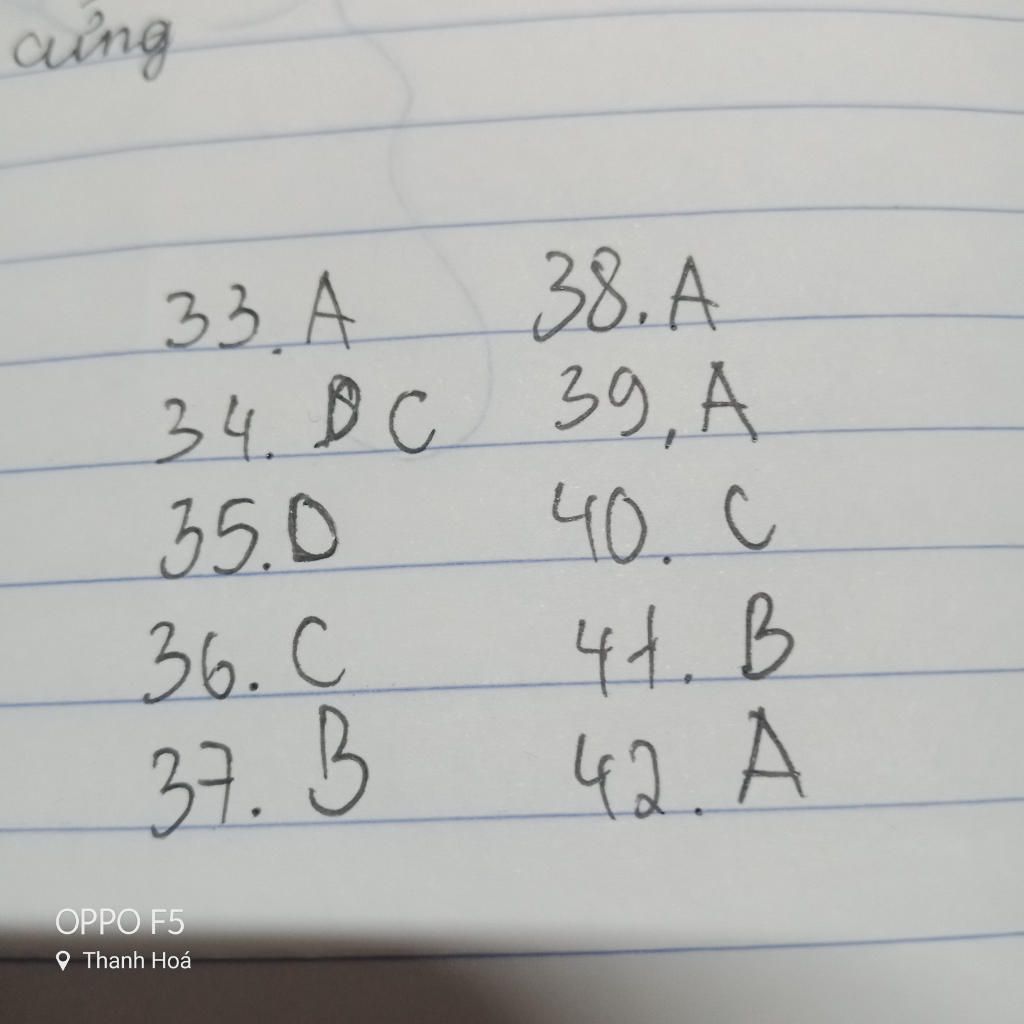 cứng
33. A
34. C
35. D
36. C
37. B
38. A
39, A
40. C
41. B
42. A
OPPO F5
Thanh Hoá